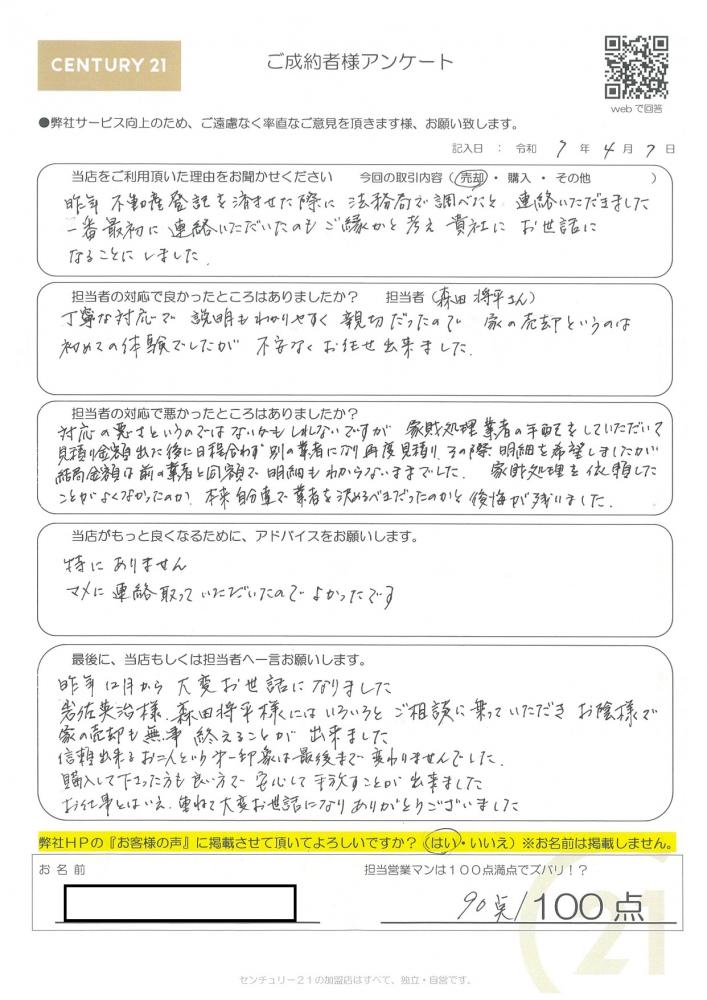 CENTURY 21
ご成約者様アンケート
webで回答
●弊社サービス向上のため、ご遠慮なく率直なご意見を頂きます様、お願い致します。
記入日 : 令和 7 年 4 月 7 日
当店をご利用頂いた理由をお聞かせください 今回の取引内容(売却・購入・その他 )
昨年 不動産登記を済ませた際に 法務局で調べたと 連絡いただきました
一番最初に 連絡いただいたのもご縁かと考え 貴社に お世話に
なることにしました.
担当者の対応で良かったところはありましたか? 担当者(森田 将平さん)
丁寧な対応で 説明もわかりやすく 親切だったので 家の売却というのは
初めての体験でしたが 不安なくお任せ出来ました.
担当者の対応で悪かったところはありましたか?
対応の悪さというのではないかもしれないですが 家財処理業者の手配をしていただいて
見積り金額出た後に日程合わず 別の業者になり再度見積り、その際 明細を希望しましたが
結局金額は前の業者と同額で 明細もわからないままでした. 家財処理を依頼した
ことがよくなかったのか 本来自身で業者を決めるべきだったのかと 後悔が残いました.
当店がもっと良くなるために、アドバイスをお願いします。
特に ありません
マメに 連絡取って いただいたので よかったです
最後に、当店もしくは担当者へ一言お願いします。
昨年12月から 大変お世話になりました
岩佐英治様、森田将平様にはいろいろと ご相談に乗っていただき お陰様で
家の売却も無事 終えることが 出来ました
信頼出来るお二人という第一印象は最後まで変わりませんでした.
購入して下さった方も良い方で 安心して手放すことが 出来ました
お仕事とはいえ、重ねて大変お世話になりありがとうございました
弊社HPの『お客様の声』に掲載させて頂いてよろしいですか?(はい・いいえ)※お名前は掲載しません。
お名前
担当営業マンは100点満点でズバリ!?
90点/100点
21
センチュリー21の加盟店はすべて、独立・自営です。